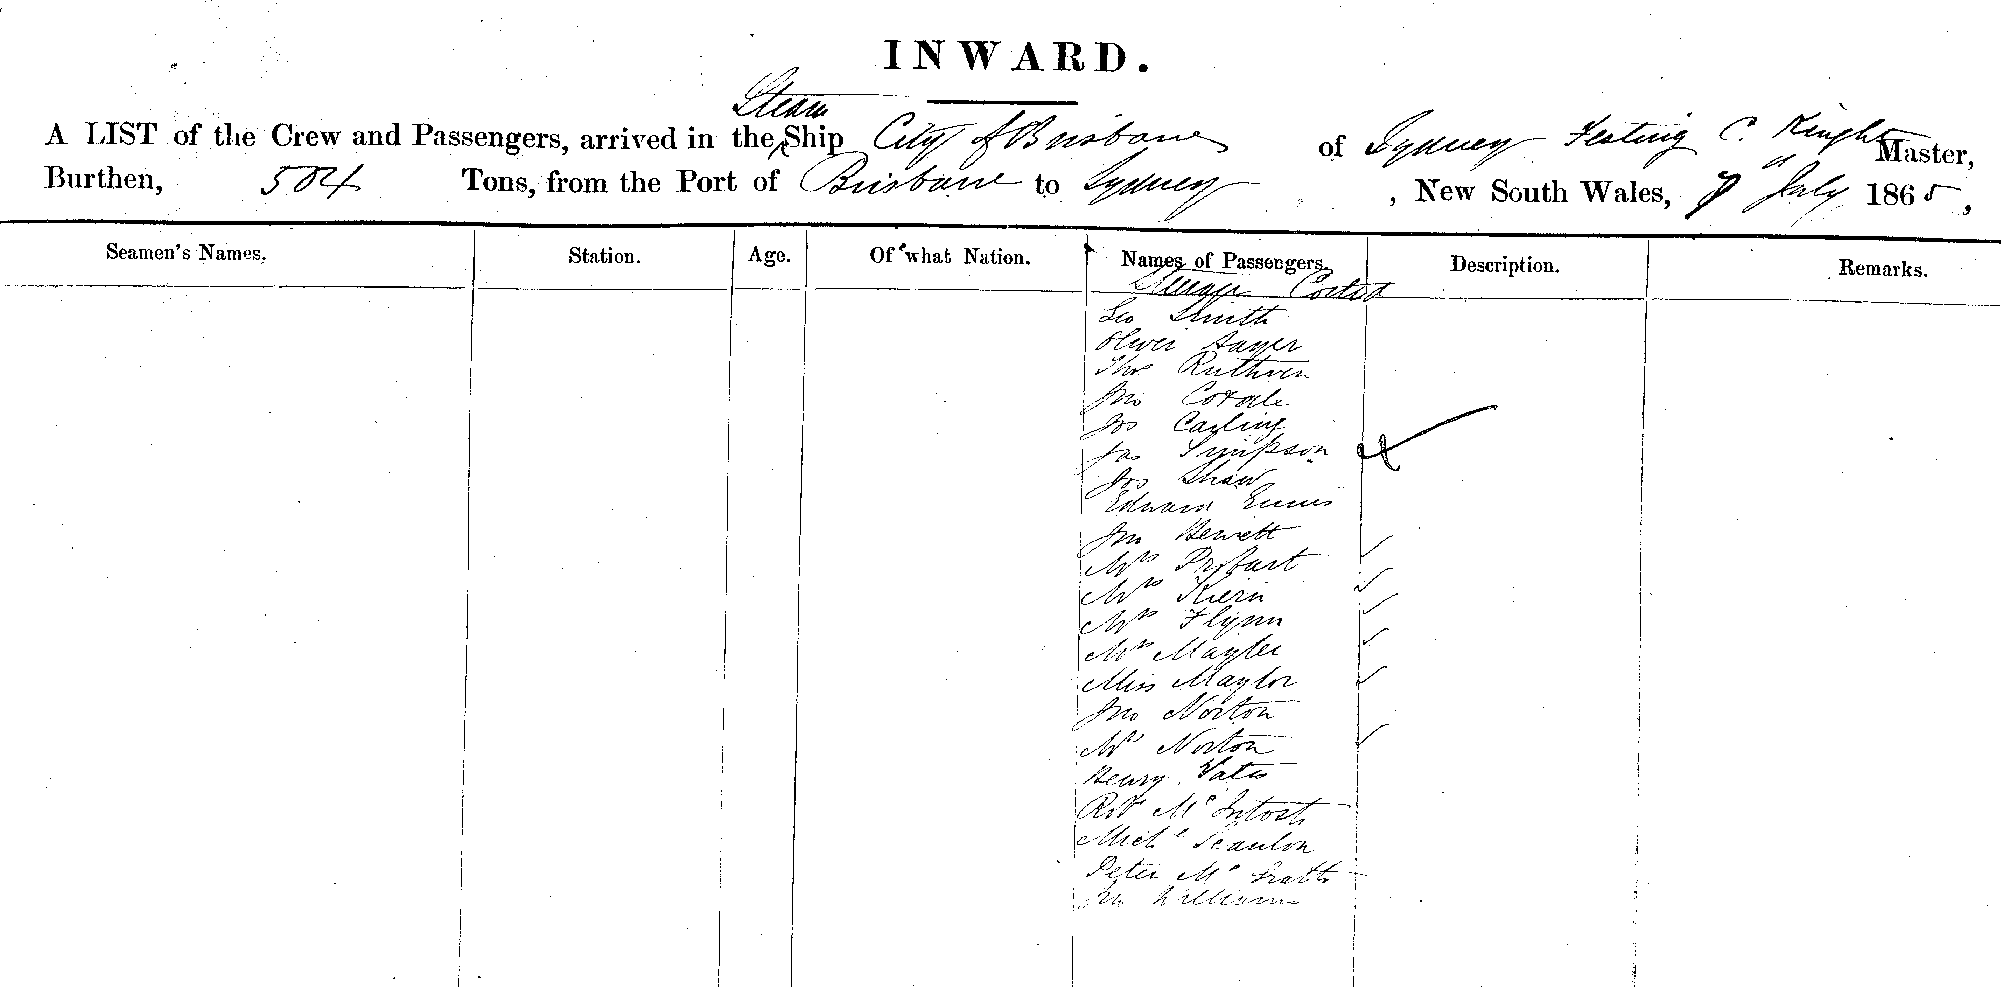 INWARD.
Steam
A LIST of the Crew and Passengers, arrived in the Ship City of Brisbane of Sydney Festing C. Knight Master,
Burthen, 504 Tons, from the Port of Brisbane to Sydney, New South Wales, 7" July 1865,
Seamen's Names. Station. Age. Of what Nation. Names of Passengers. Description. Remarks.
Steerage Contd
Geo Smith
Oliver Sayer
Thos Ruthven
Jno
Jos Carling
Jas Simpson
Jos Shaw
Edward Ennis
Jno Hewett
Mrs Probart
Mrs Kiern
Mrs Flynn
Mrs Mayler
Miss Maylor
Jno Norton
Mrs Norton
Henry Yates
Robt McIntosh
Michl Scanlon
Peter McGrath
Jno Williams